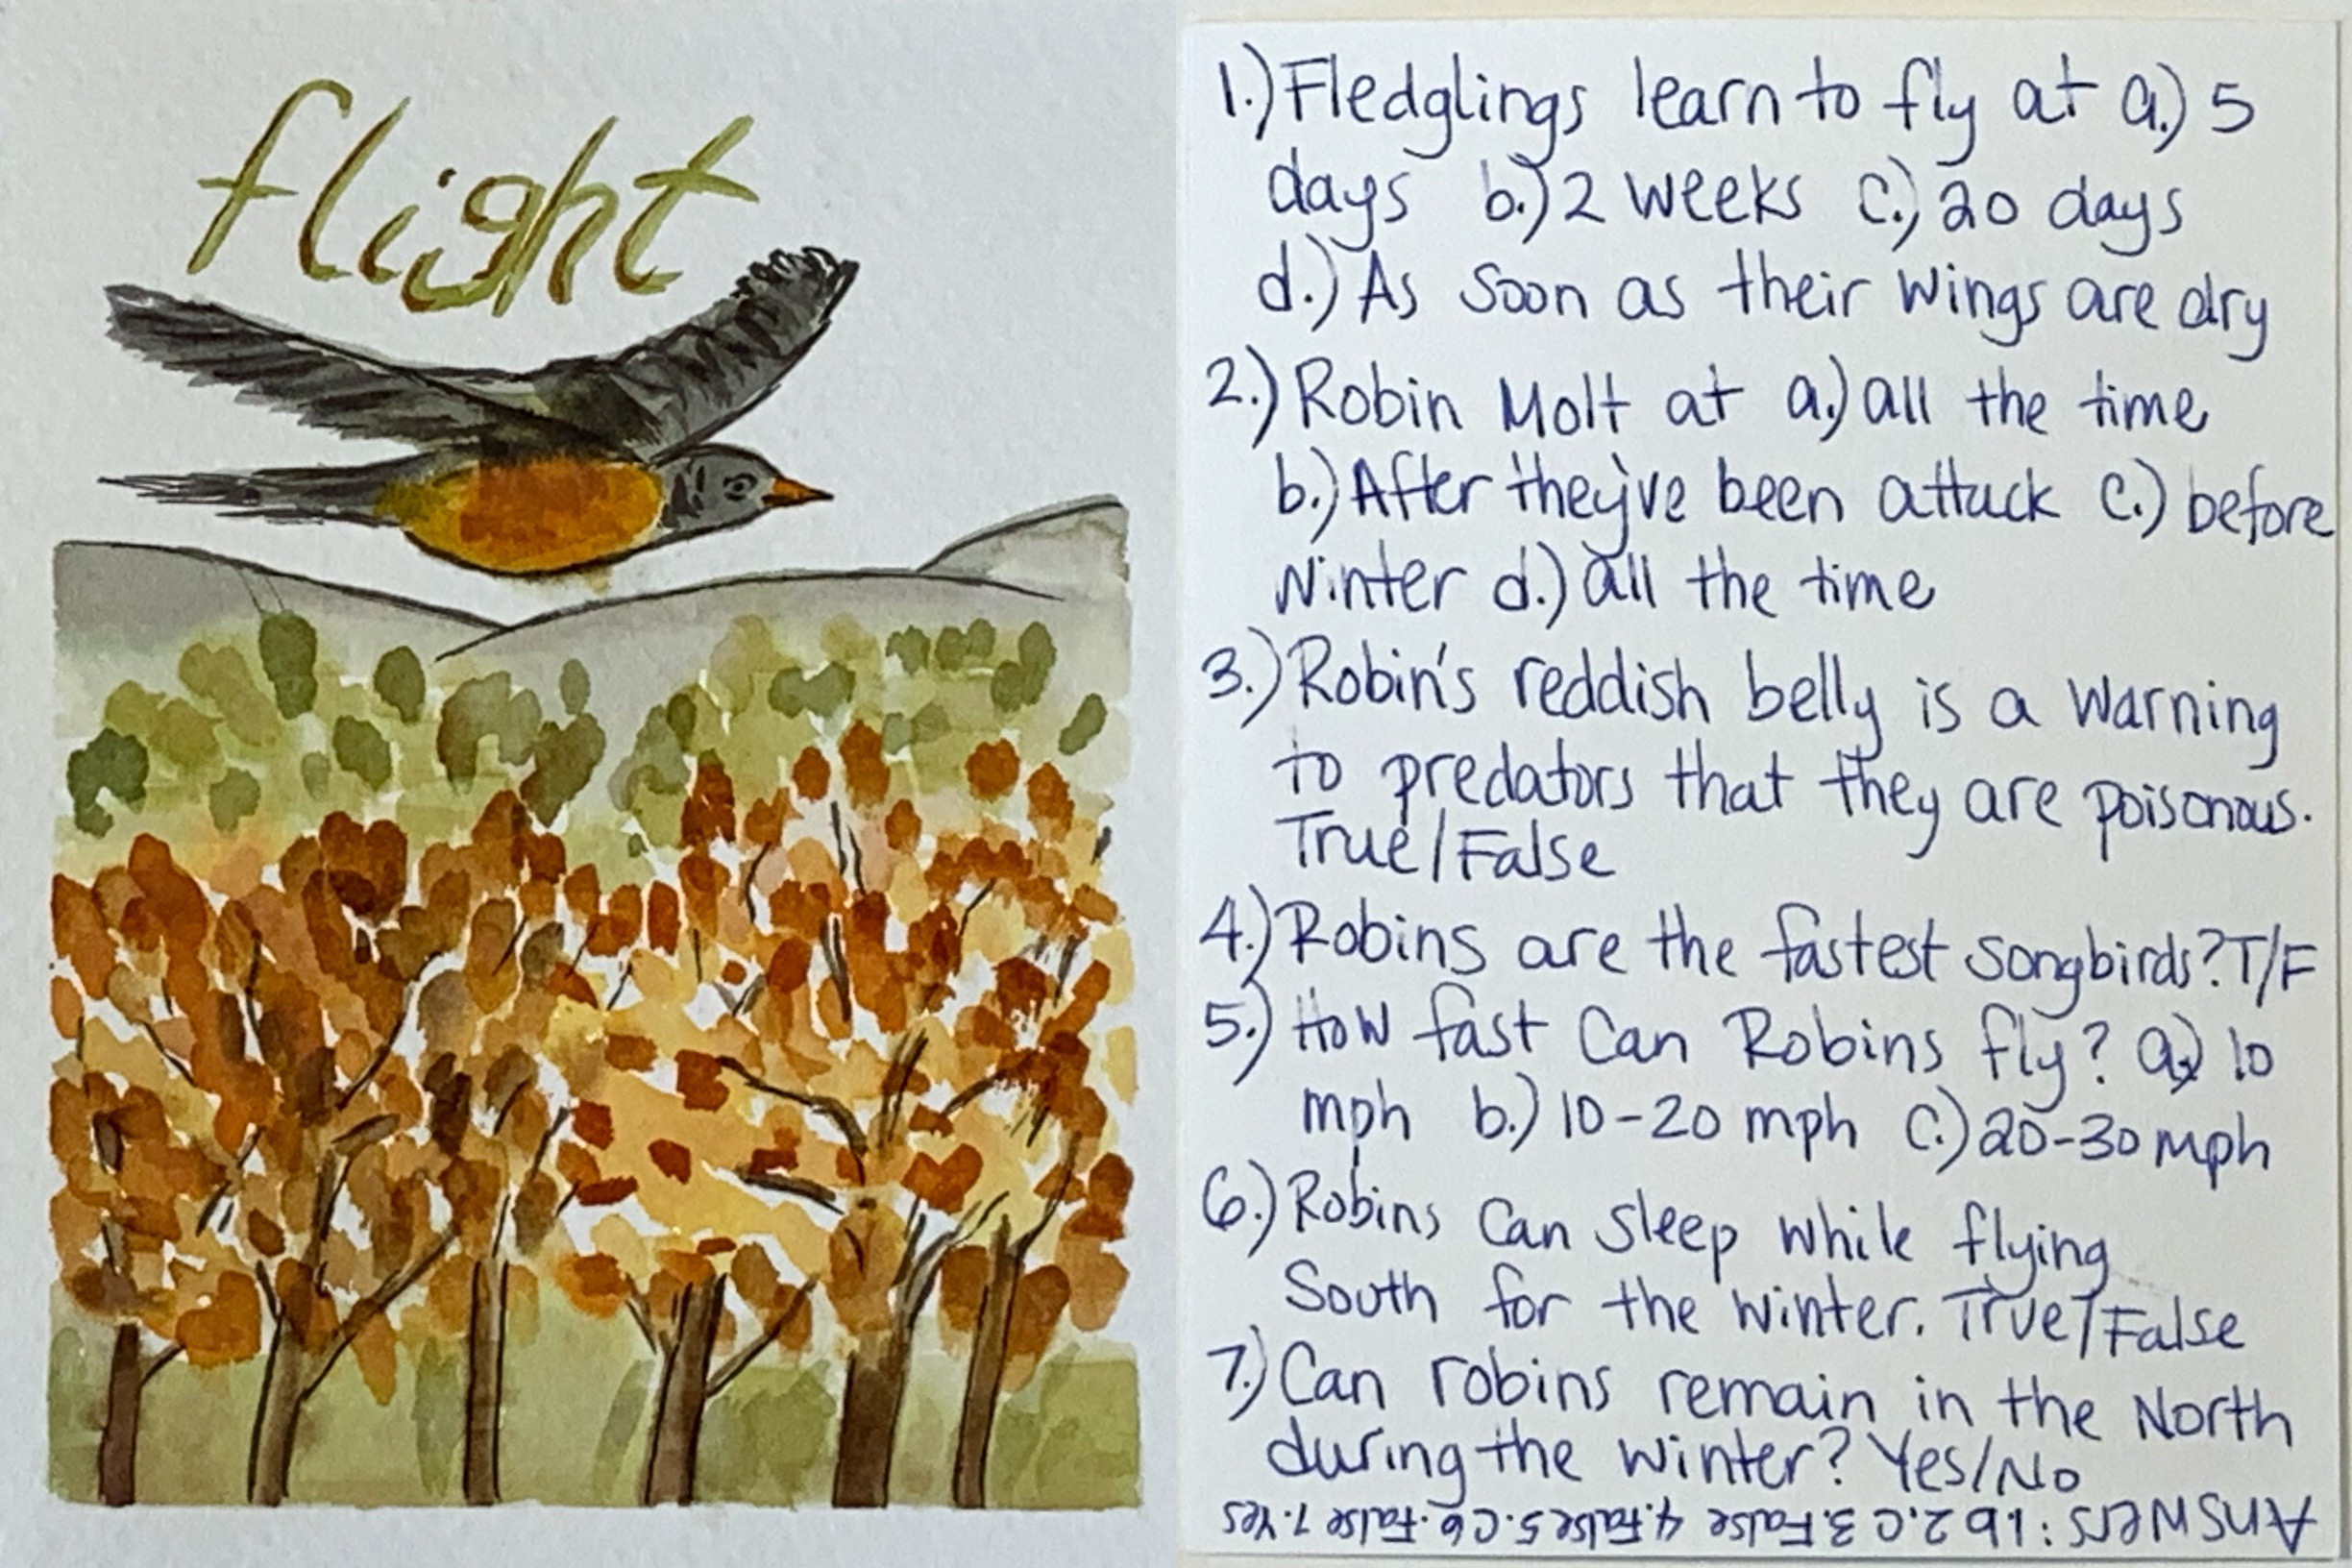 flight
1.) Fledglings learn to fly at a.) 5
days b.) 2 weeks c.) 20 days
d.) As soon as their wings are dry
2.) Robin Molt at a.) all the time
b.) After they've been attack c.) before
Winter d.) all the time
3.) Robin's reddish belly is a warning
to predators that they are poisonous.
True/False
4.) Robins are the fastest songbirds? T/F
5.) How fast can Robins fly? a.) 10
mph b.) 10-20 mph c.) 20-30 mph
6.) Robins can sleep while flying
South for the winter. True/False
7.) Can robins remain in the North
during the winter? Yes/No
Answers: 1.b 2.C 3.False 4.False 5.C 6.False 7.Yes